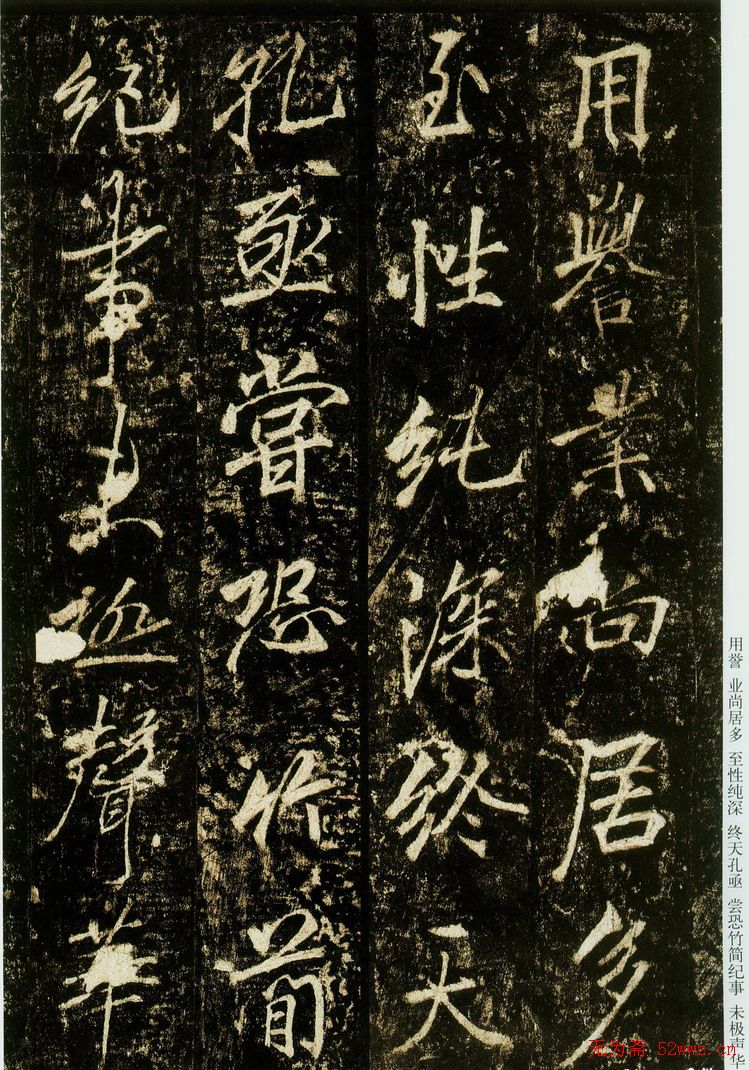 用譽業尚居多
至性純深終天
孔亟嘗恐竹簡
紀事未極聲華
用誉 业尚居多 至性纯深 终天孔亟 尝恐竹简纪事 未极声华
无为斋 52wwz.cn